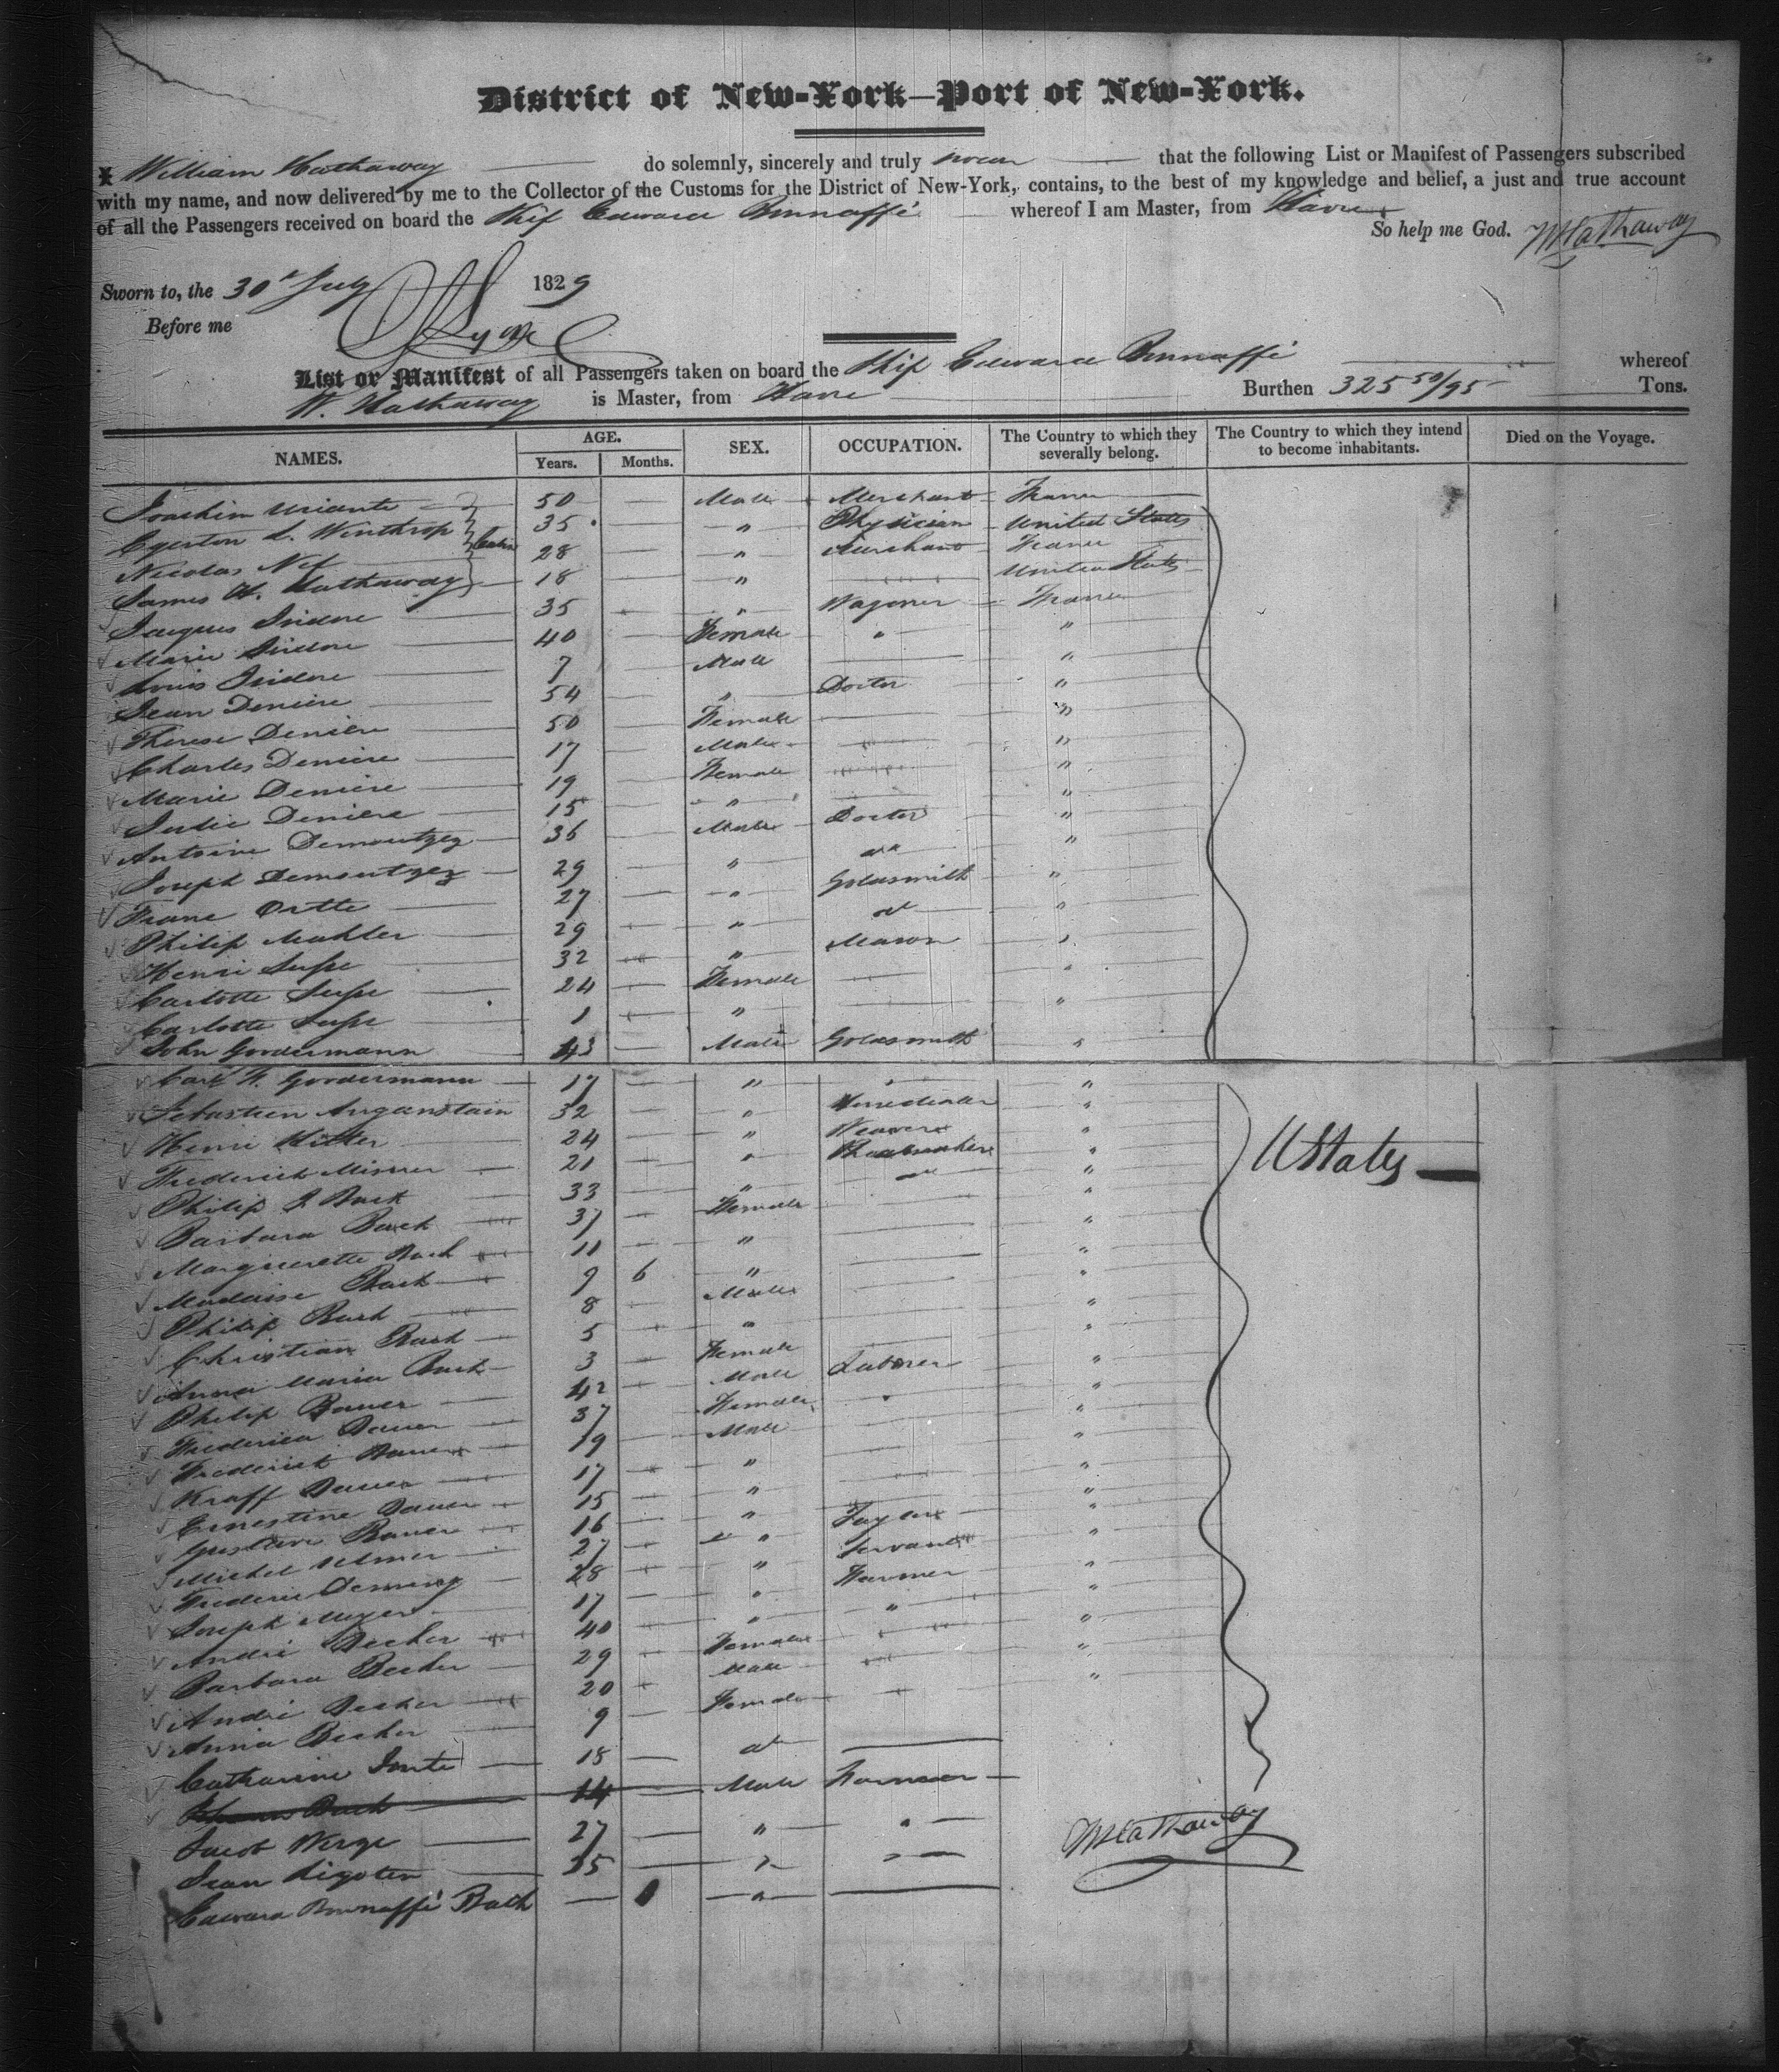 District of New-York—Port of New-York.
I, William Hathaway do solemnly, sincerely and truly swear that the following List or Manifest of Passengers subscribed
with my name, and now delivered by me to the Collector of the Customs for the District of New-York, contains, to the best of my knowledge and belief, a just and true account
of all the Passengers received on board the Ship Edward Bonnaffé whereof I am Master, from Havre
So help me God. WHathaway
Sworn to, the 30th July 1829
Before me
List or Manifest of all Passengers taken on board the Ship Edward Bonnaffé whereof
W. Hathaway is Master, from Havre Burthen 325 50/95 Tons.
NAMES. AGE. SEX. OCCUPATION. The Country to which they severally belong. The Country to which they intend to become inhabitants. Died on the Voyage.
Years. Months.
Joachim Uriante 50 Male Merchant France
Egerton L. Winthrop 35 " Physician United States
Nicolas Nef 28 " Merchant France
Cabin
James H. Hathaway 18 " United States
Jacques Isidore 35 " Wagoner France
Marie Isidore 40 Female " "
Louis Isidore 7 Male "
Jean Deniere 54 " Doctor "
Therese Deniere 50 Female "
Charles Deniere 17 Male "
Marie Deniere 19 Female "
Julie Deniere 15 " "
Antoine Demontgez 36 Male Doctor "
Joseph Demontgez 29 " do "
Franc Ortte 27 " Goldsmith "
Philip Mahler 29 " do "
Henri 32 " Mason "
Carlotte 24 Female "
Carlotte 1 " "
John Goodermann 43 Male Goldsmith "
Carl W. Goodermann 17 " " "
Sebastien Anganstain 32 " "
Henri 24 " Weaver "
Frederick Misner 21 " "
Philip J. Back 33 " "
Barbara Back 37 Female "
Marguerette Back 11 " "
Back 9 6 " "
Philip Back 8 Male "
Christian Back 5 " "
Anna Maria Back 3 Female "
Philip Bauer 42 Male Laborer "
Frederica Bauer 37 Female " "
Frederick Bauer 19 Male "
Kraff Bauer 17 " "
Ernestine Bauer 15 " "
Gustave Bauer 16 " "
Michel Ulmer 27 " Taylor "
Frederic 28 " Servant "
Joseph Meyer 17 " Farmer "
André Becher 40 " " "
Barbara Becher 29 Female "
André Becher 20 Male "
Anna Becher 9 Female "
Catharine 18 do
Back 14 Male Farmer
Jacob 27 " "
Jean Rigoten 35 " "
Edward Bonnaffé Back "
UStates
WHathaway